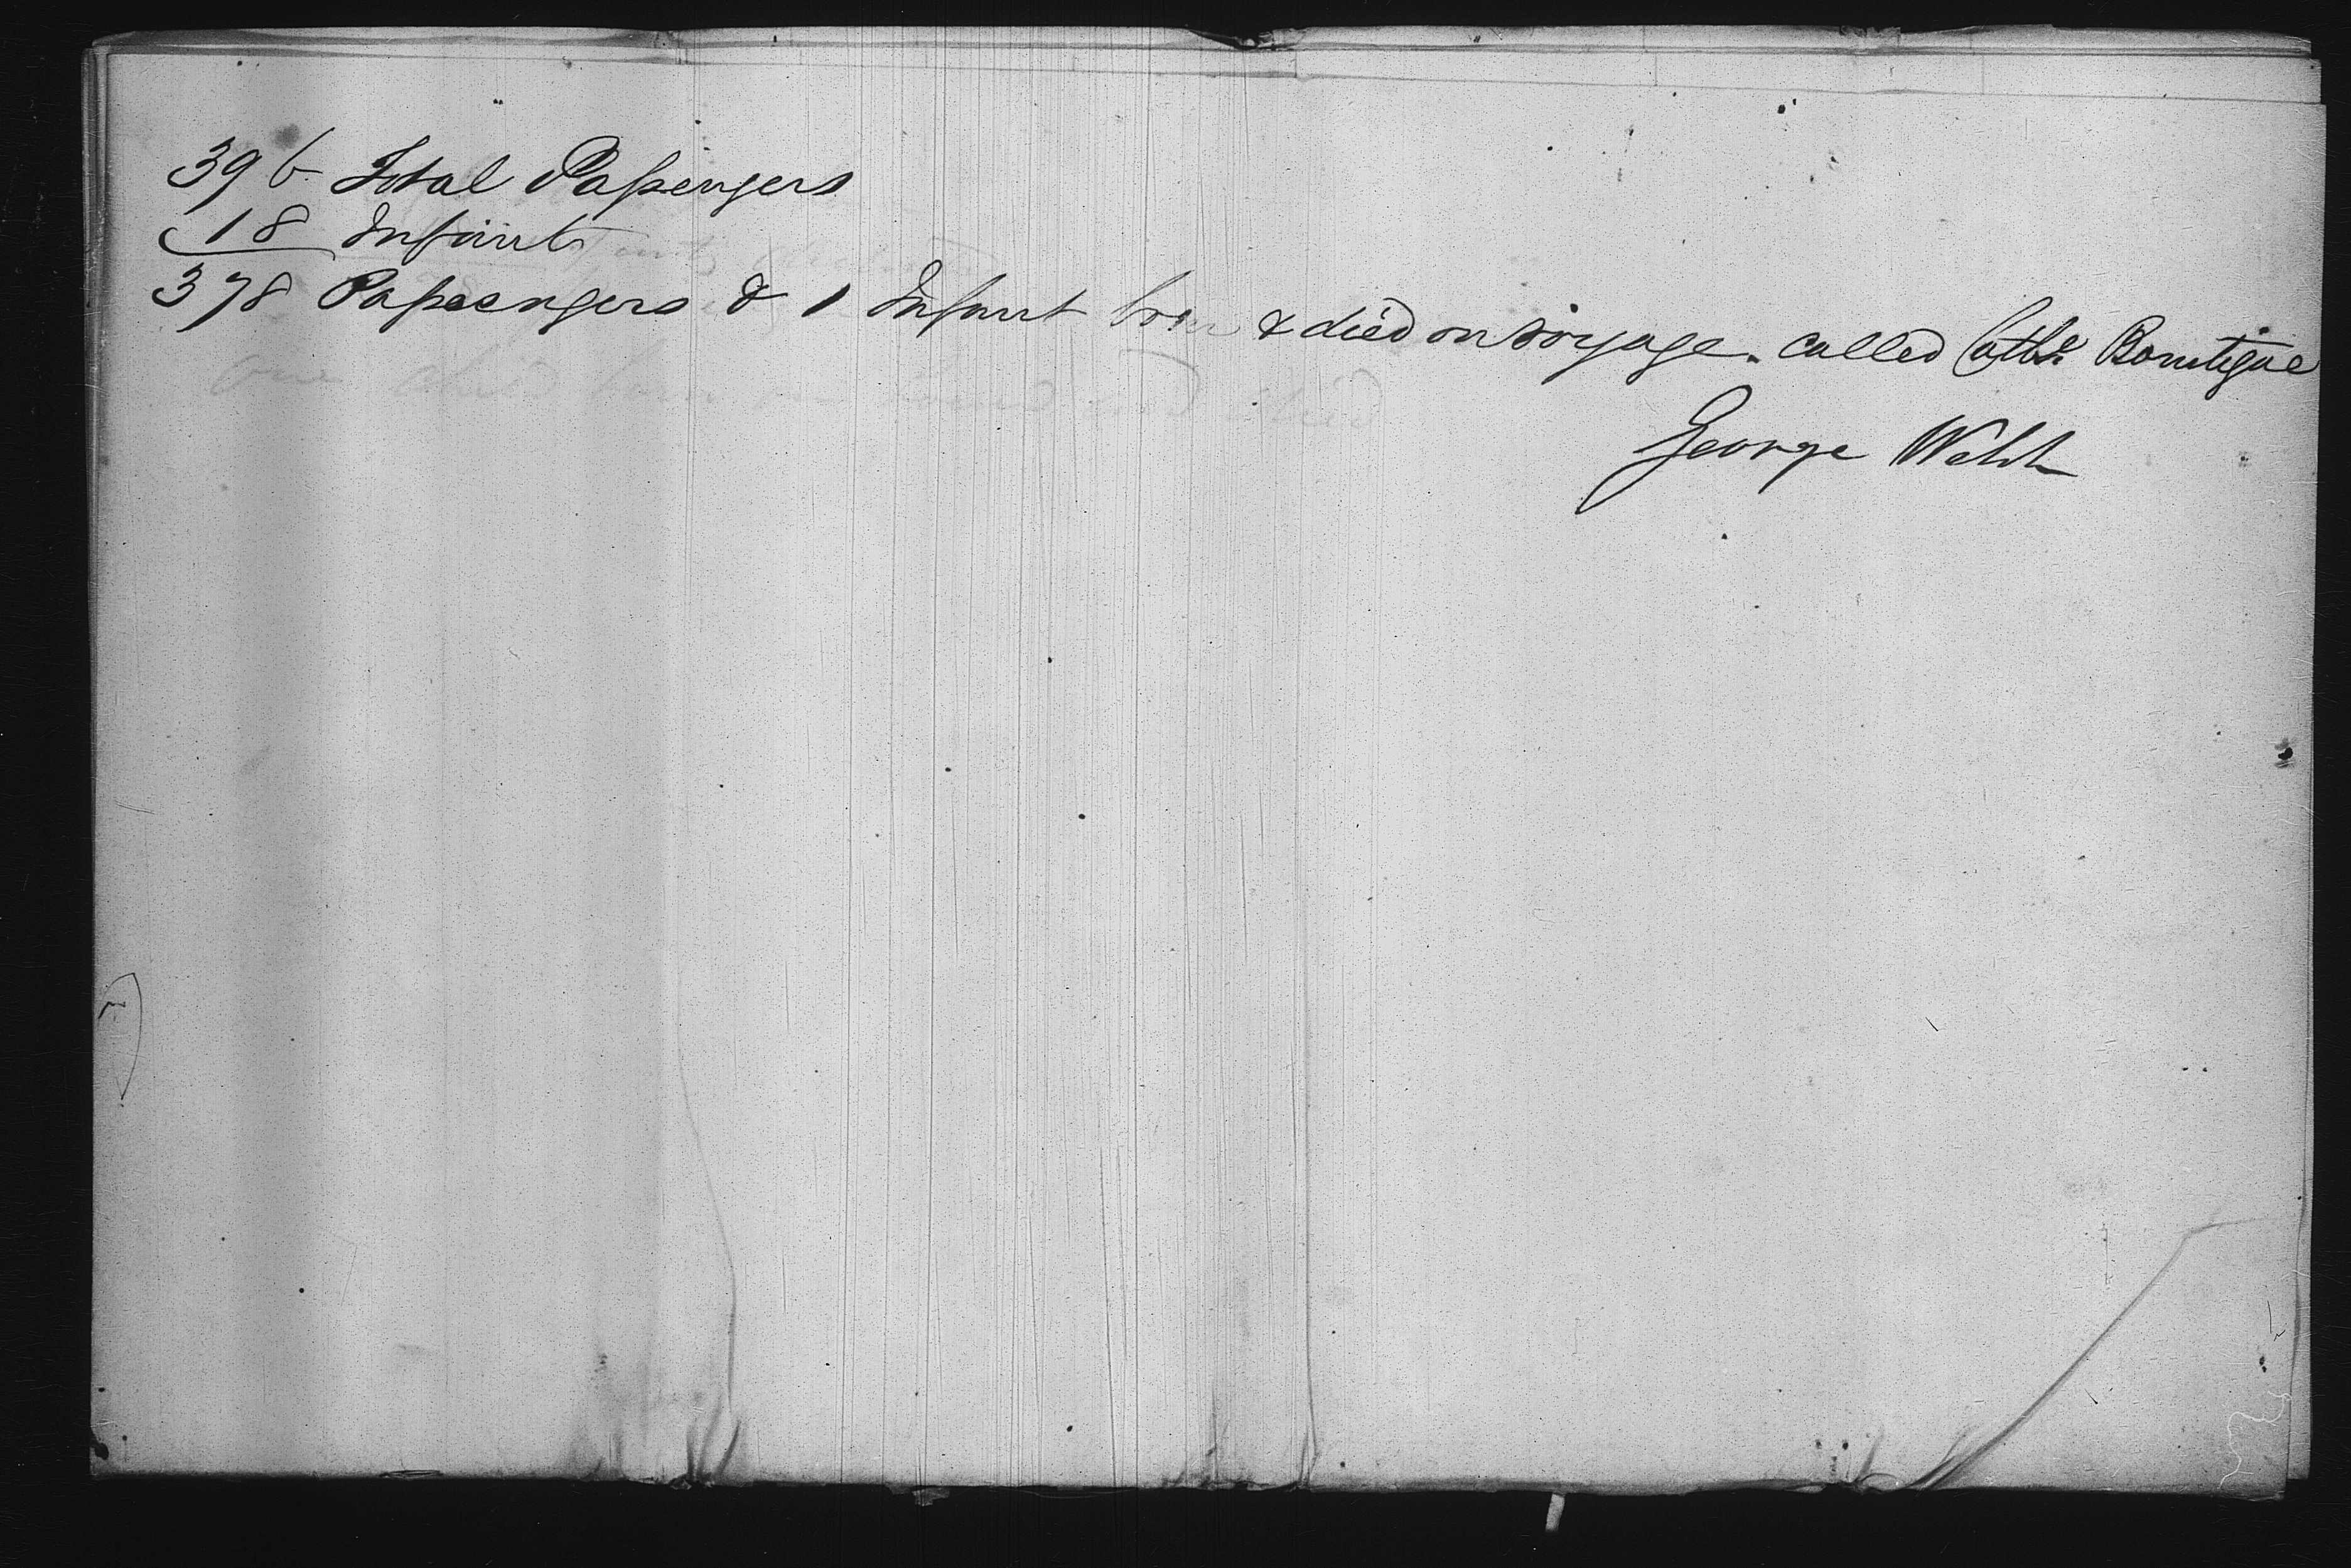 396 Total Passengers
18 Infants
378 Passengers & 1 Infant born & died on voyage. called Cathe
One child born on board and died
George